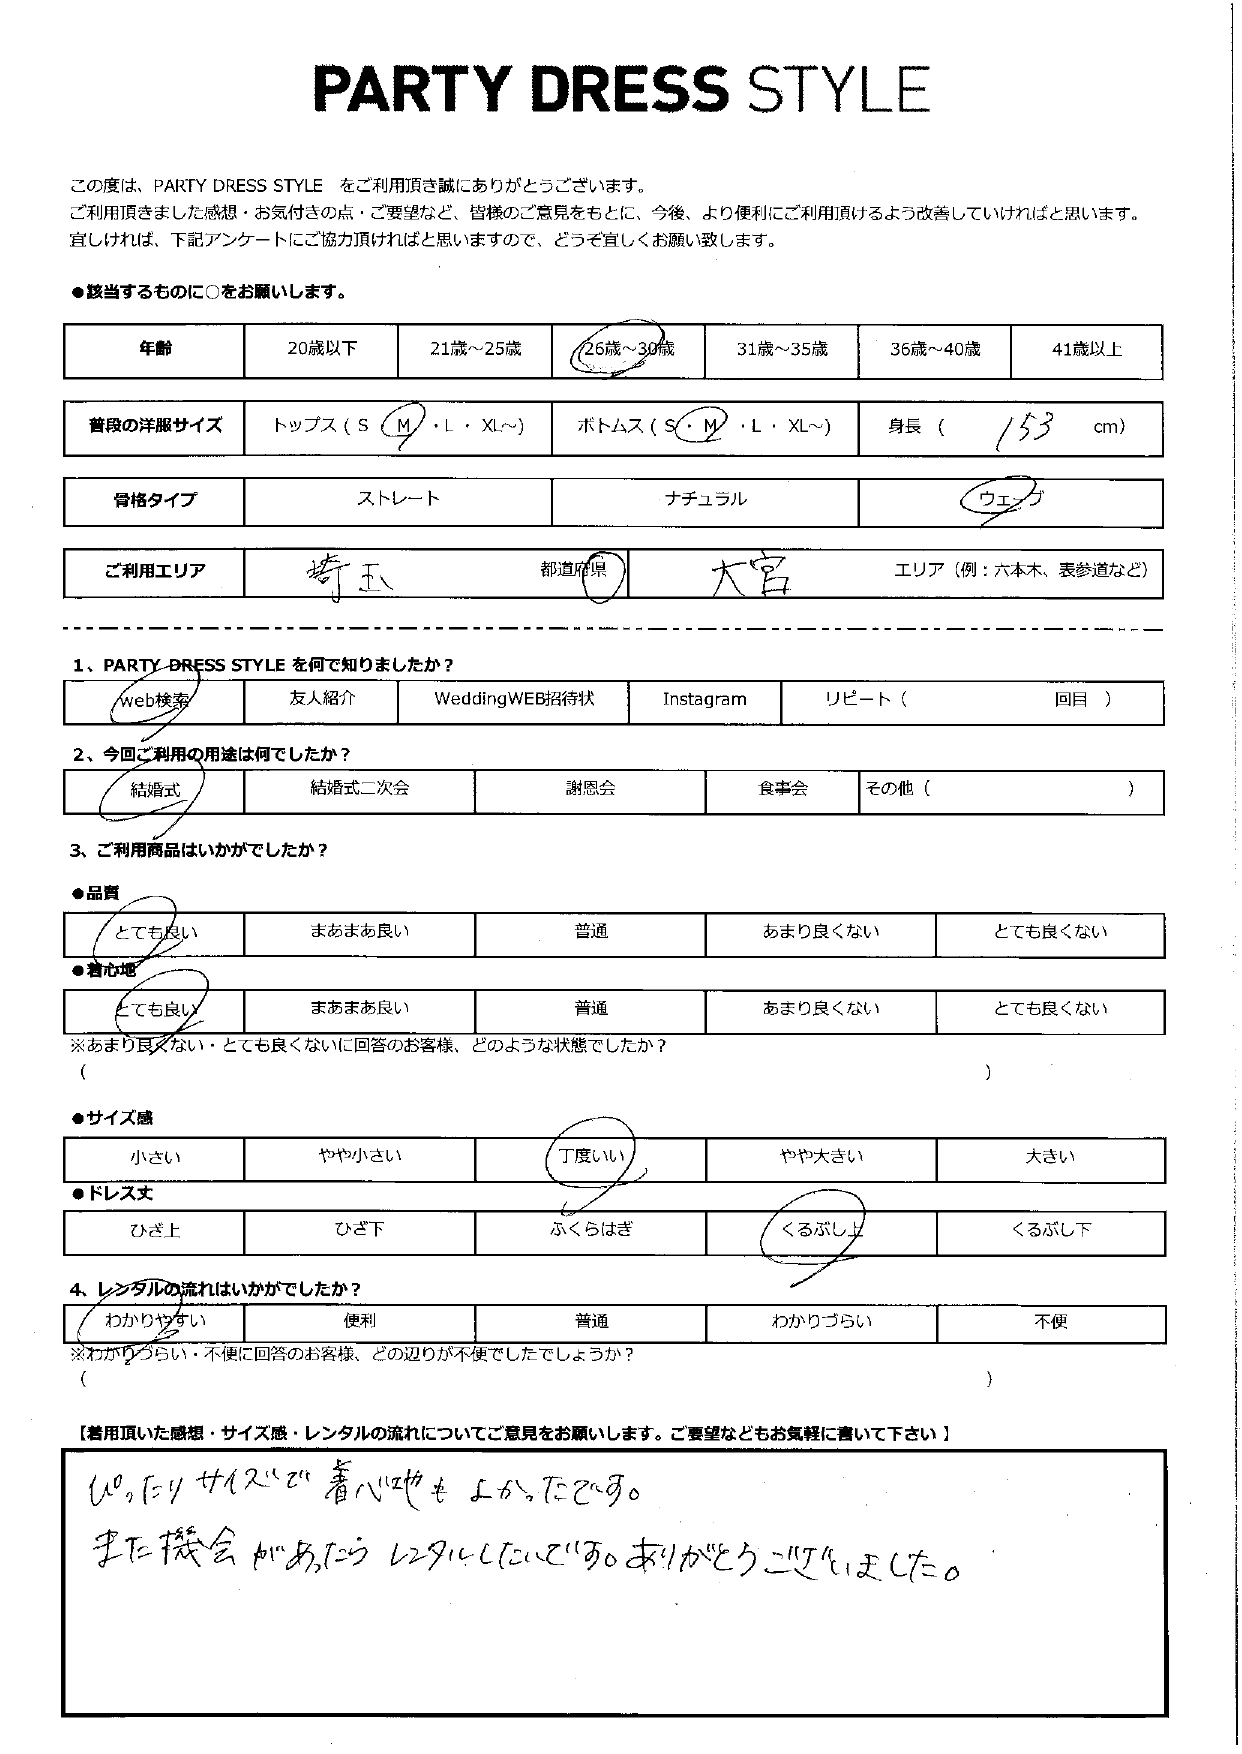 PARTY DRESS STYLE
この度は、PARTY DRESS STYLE をご利用頂き誠にありがとうございます。
ご利用頂きました感想・お気付きの点・ご要望など、皆様のご意見をもとに、今後、より便利にご利用頂けるよう改善していければと思います。
宜しければ、下記アンケートにご協力頂ければと思いますので、どうぞ宜しくお願い致します。
●該当するものに○をお願いします。
年齢 20歳以下 21歳～25歳 26歳～30歳 31歳～35歳 36歳～40歳 41歳以上
普段の洋服サイズ トップス ( S ・ M ・ L ・ XL～) ボトムス ( S ・ M ・ L ・ XL～) 身長 ( 153 cm)
骨格タイプ ストレート ナチュラル ウェーブ
ご利用エリア 埼玉 都道府県 大宮 エリア（例：六本木、表参道など）
1、PARTY DRESS STYLE を何で知りましたか？
web検索 友人紹介 WeddingWEB招待状 Instagram リピート（ 回目 ）
2、今回ご利用の用途は何でしたか？
結婚式 結婚式二次会 謝恩会 食事会 その他（ ）
3、ご利用商品はいかがでしたか？
●品質
とても良い まあまあ良い 普通 あまり良くない とても良くない
●着心地
とても良い まあまあ良い 普通 あまり良くない とても良くない
※あまり良くない・とても良くないに回答のお客様、どのような状態でしたか？
（ ）
●サイズ感
小さい やや小さい 丁度いい やや大きい 大きい
●ドレス丈
ひざ上 ひざ下 ふくらはぎ くるぶし上 くるぶし下
4、レンタルの流れはいかがでしたか？
わかりやすい 便利 普通 わかりづらい 不便
※わかりづらい・不便に回答のお客様、どの辺りが不便でしたでしょうか？
（ ）
【着用頂いた感想・サイズ感・レンタルの流れについてご意見をお願いします。ご要望などもお気軽に書いて下さい】
ぴったりサイズで着心地もよかったです。
また機会があったらレンタルしたいです。ありがとうございました。